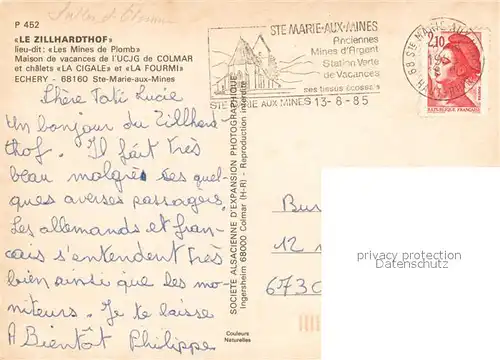 P 452
«LE ZILLHARDTHOF»
lieu-dit: «Les Mines de Plomb»
Maison de vacances de l'UCJG de COLMAR
et châlets «LA CIGALE» et «LA FOURMI»
ECHERY - 68160 Ste-Marie-aux-Mines
Chère Tati Lucie
Un bonjour du Zillhard
thof. Il fait très
beau malgrés des quel-
ques averses passagers.
Les allemands et fran-
cais s'entendent très
bien ainsi que les mo-
niteurs. Je te laisse
A Bientôt Philippe
SOCIETE ALSACIENNE D'EXPANSION PHOTOGRAPHIQUE
Ingersheim 68000 Colmar (H-R) - Reproduction interdite
Couleurs
Naturelles
STE MARIE-AUX-MINES
Anciennes
Mines d'Argent
Station Verte
de Vacances
ses tissus écossais
STE MARIE AUX MINES 13-8-85
68 STE MARIE AUX
2,10
REPUBLIQUE FRANÇAISE
12
6730
privacy protection
Datenschutz